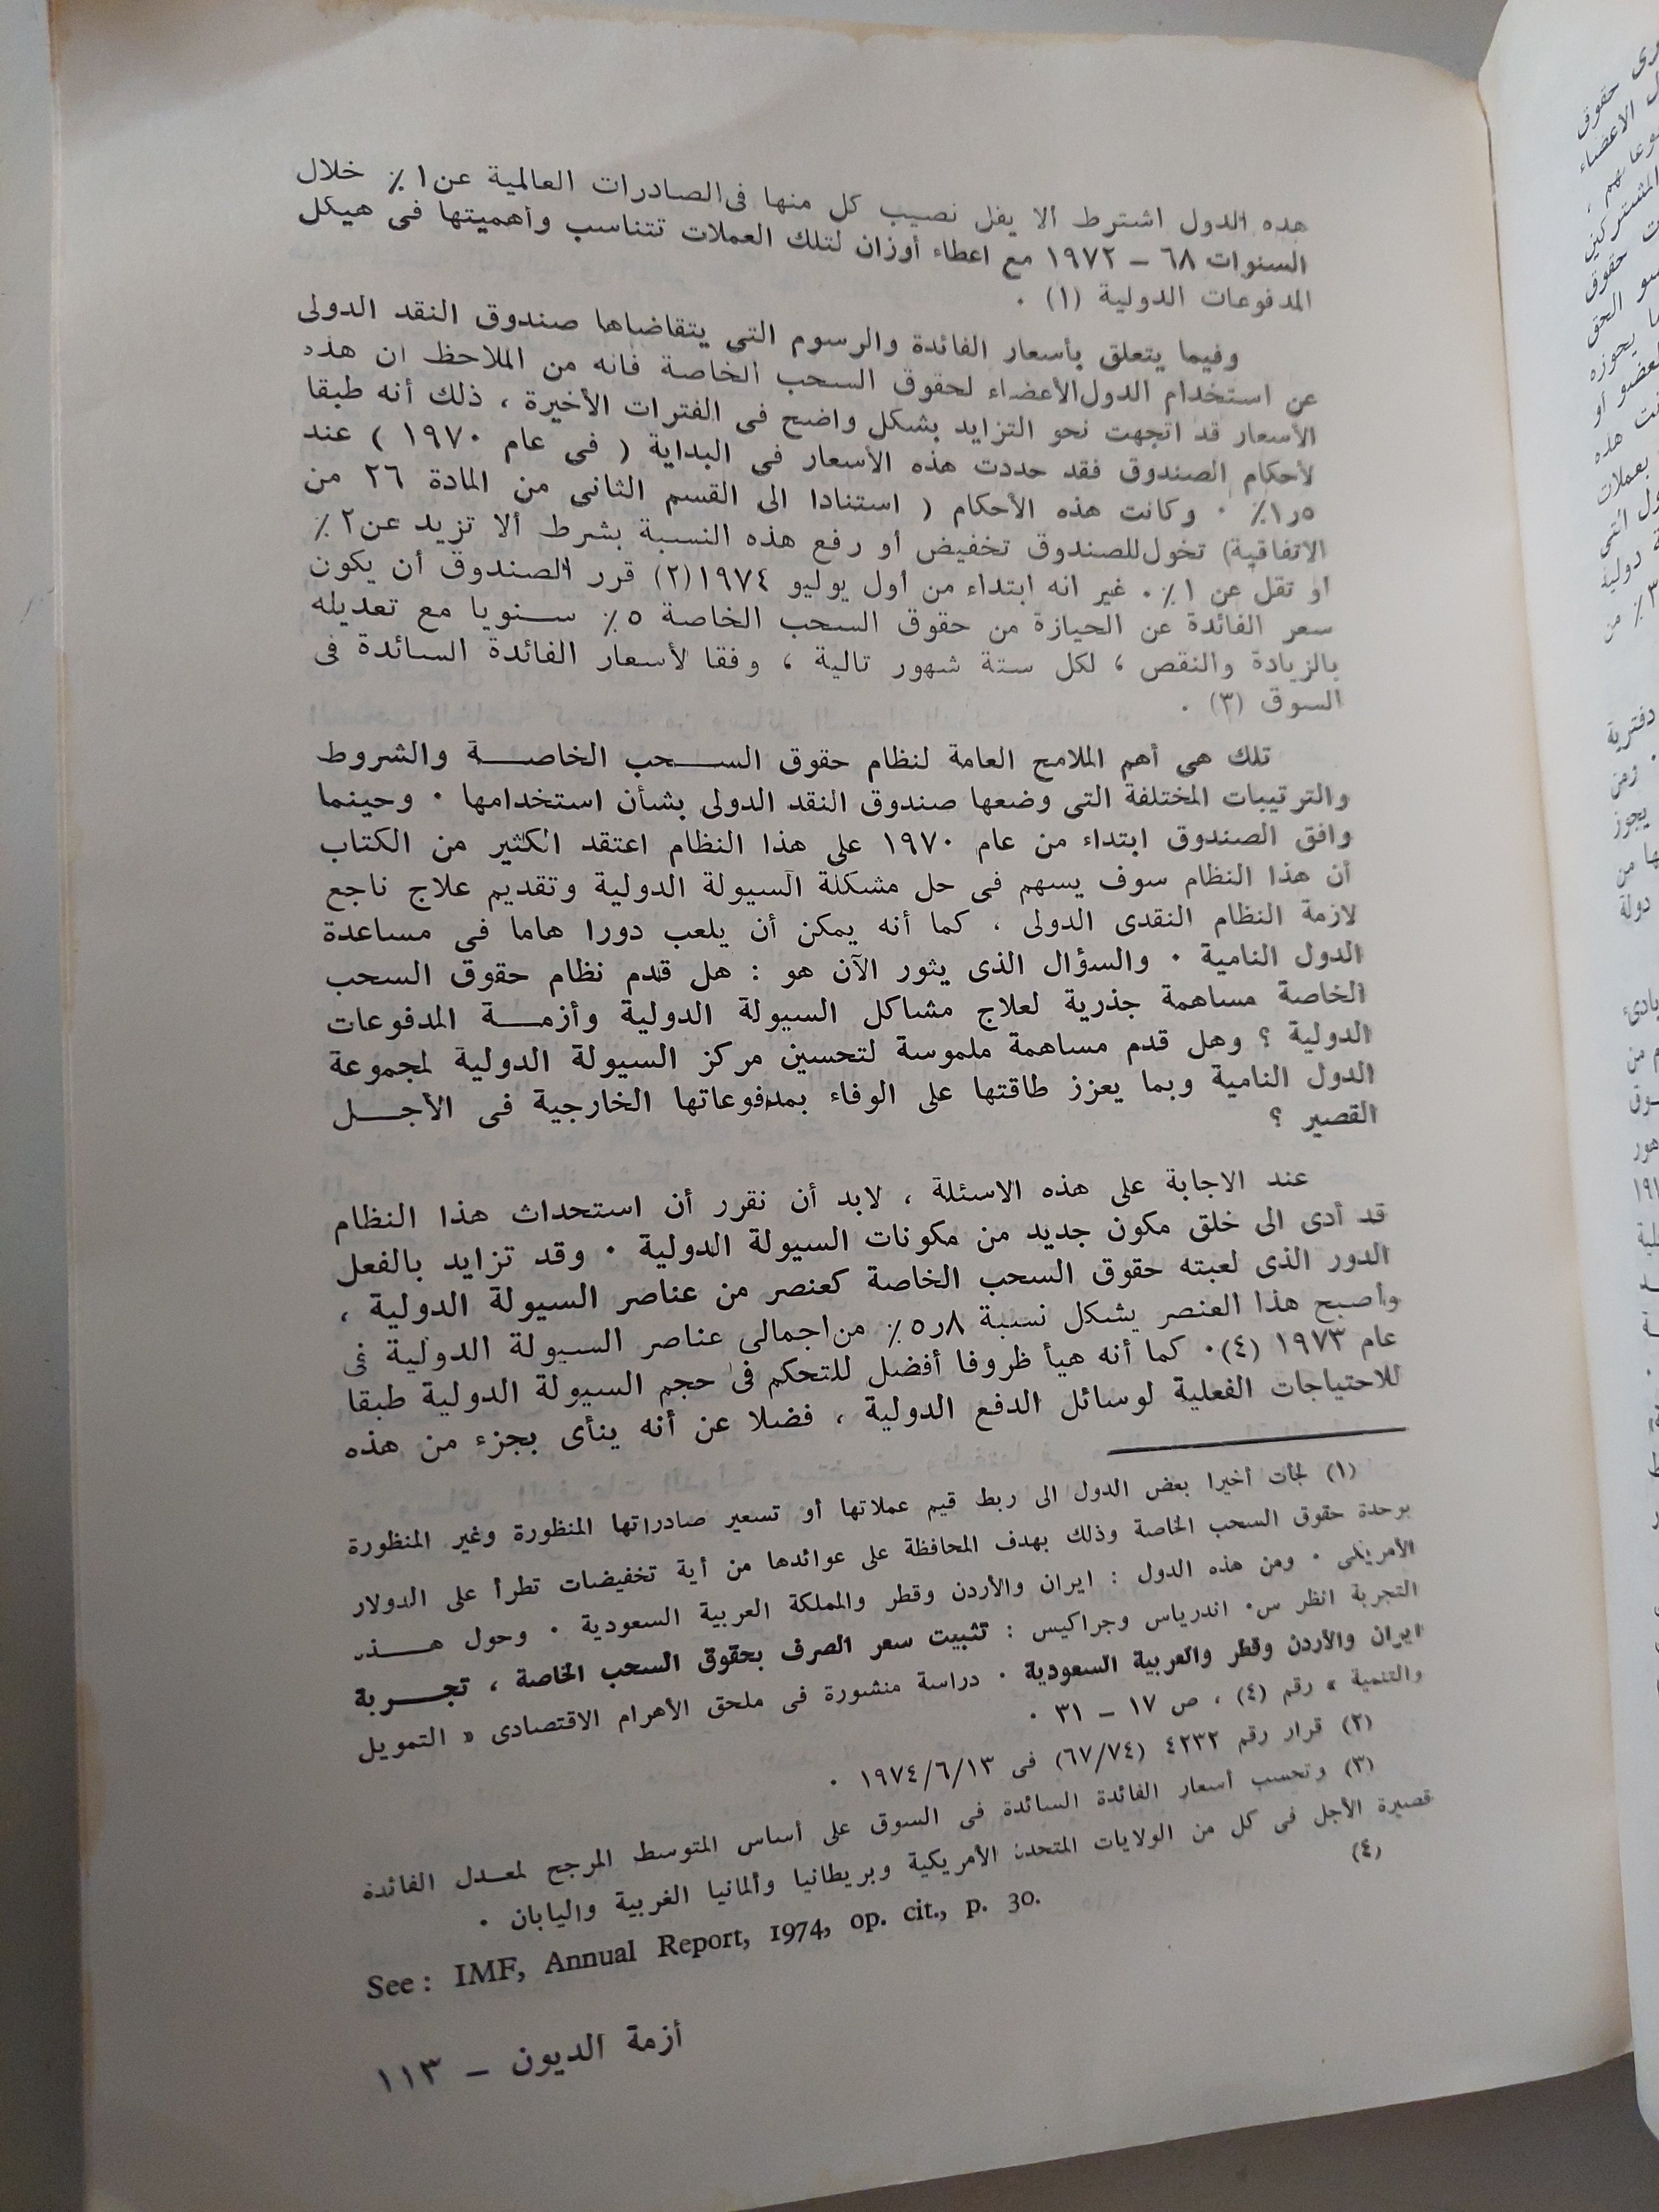 هذه الدول اشترط ألا يقل نصيب كل منها فى الصادرات العالمية عن ١٪ خلال
السنوات ٦٨ – ١٩٧٢ مع اعطاء أوزان لتلك العملات تتناسب وأهميتها فى هيكل
المدفوعات الدولية (١) ٠
وفيما يتعلق بأسعار الفائدة والرسوم التى يتقاضاها صندوق النقد الدولى
عن استخدام الدول الأعضاء لحقوق السحب الخاصة فانه من الملاحظ ان هذه
الأسعار قد اتجهت نحو التزايد بشكل واضح فى الفترات الأخيرة ، ذلك أنه طبقا
لأحكام الصندوق فقد حددت هذه الأسعار فى البداية ( فى عام ١٩٧٠ ) عند
٥ر١٪ ٠ وكانت هذه الأحكام ( استنادا الى القسم الثانى من المادة ٢٦ من
الاتفاقية) تخول للصندوق تخفيض أو رفع هذه النسبة بشرط ألا تزيد عن ٢٪
او تقل عن ١٪ ٠ غير انه ابتداء من أول يوليو ١٩٧٤ (٢) قرر الصندوق أن يكون
سعر الفائدة عن الحيازة من حقوق السحب الخاصة ٥٪ سنويا مع تعديله
بالزيادة والنقص ، لكل ستة شهور تالية ، وفقا لأسعار الفائدة السائدة فى
السوق (٣) ٠
تلك هى أهم الملامح العامة لنظام حقوق السحب الخاصة والشروط
والترتيبات المختلفة التى وضعها صندوق النقد الدولى بشأن استخدامها ٠ وحينما
وافق الصندوق ابتداء من عام ١٩٧٠ على هذا النظام اعتقد الكثير من الكتاب
أن هذا النظام سوف يسهم فى حل مشكلة السيولة الدولية وتقديم علاج ناجع
لازمة النظام النقدى الدولى ، كما أنه يمكن أن يلعب دورا هاما فى مساعدة
الدول النامية ٠ والسؤال الذى يثور الآن هو : هل قدم نظام حقوق السحب
الخاصة مساهمة جذرية لعلاج مشاكل السيولة الدولية وأزمة المدفوعات
الدولية ؟ وهل قدم مساهمة ملموسة لتحسين مركز السيولة الدولية لمجموعة
الدول النامية وبما يعزز طاقتها على الوفاء بمدفوعاتها الخارجية فى الأجل
القصير ؟
عند الاجابة على هذه الاسئلة ، لابد أن نقرر أن استحداث هذا النظام
قد أدى الى خلق مكون جديد من مكونات السيولة الدولية ٠ وقد تزايد بالفعل
الدور الذى لعبته حقوق السحب الخاصة كعنصر من عناصر السيولة الدولية ،
وأصبح هذا العنصر يشكل نسبة ٨ر٥٪ من اجمالى عناصر السيولة الدولية فى
عام ١٩٧٣ (٤)٠ كما أنه هيأ ظروفا أفضل للتحكم فى حجم السيولة الدولية طبقا
للاحتياجات الفعلية لوسائل الدفع الدولية ، فضلا عن أنه ينأى بجزء من هذه
(١) لجأت أخيرا بعض الدول الى ربط قيم عملاتها أو تسعير صادراتها المنظورة وغير المنظورة
بوحدة حقوق السحب الخاصة وذلك بهدف المحافظة على عوائدها من أية تخفيضات تطرأ على الدولار
الأمريكى ٠ ومن هذه الدول : ايران والأردن وقطر والمملكة العربية السعودية ٠ وحول هذه
التجربة انظر س٠ اندرياس وجراكيس : تثبيت سعر الصرف بحقوق السحب الخاصة ، تجربة
ايران والأردن وقطر والعربية السعودية ٠ دراسة منشورة فى ملحق الأهرام الاقتصادى « التمويل
والتنمية » رقم (٤) ، ص ١٧ – ٣١ ٠
(٢) قرار رقم ٤٢٣٢ (٦٧/٧٤) فى ١٩٧٤/٦/١٣ ٠
(٣) وتحسب أسعار الفائدة السائدة فى السوق على أساس المتوسط المرجح لمعدل الفائدة
قصيرة الأجل فى كل من الولايات المتحدة الأمريكية وبريطانيا وألمانيا الغربية واليابان ٠
(٤)
See : IMF, Annual Report, 1974, op. cit., p. 30.
أزمة الديون – ١١٣